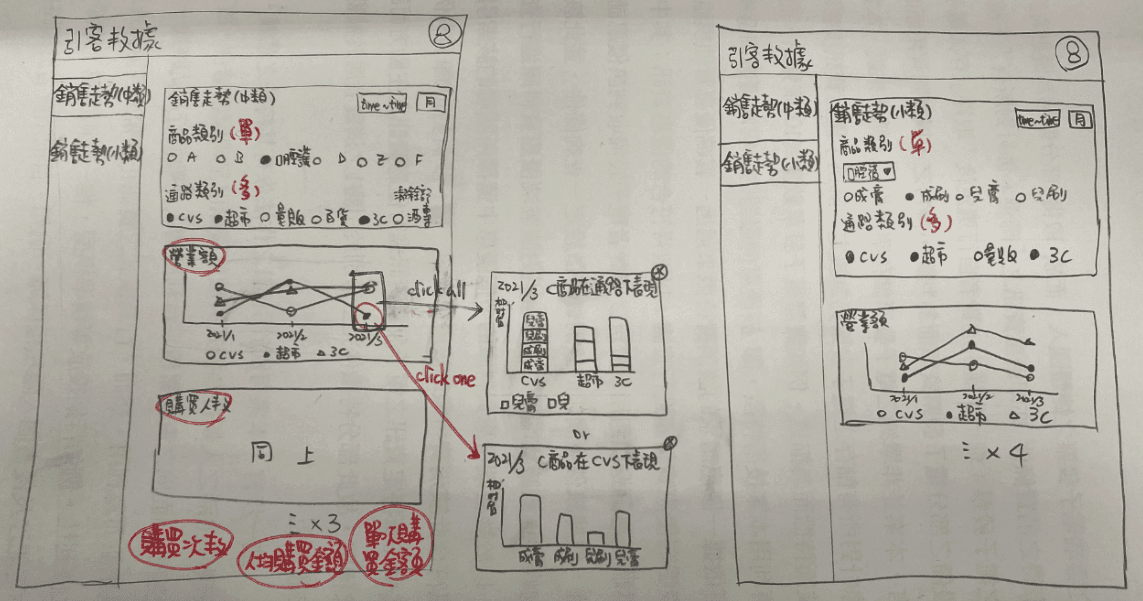 引客教據
8
銷售走勢(中類)
銷售走勢(小類)
銷售走勢(中類)
time~time 月
商品類別(單)
A B 口腔 D Z F
通路類別(多)
CVS 超市 量販 百貨 3C 酒專
營業額
2021/1 2021/2 2021/3
CVS 超市 3C
購買人教
同上
⋮ × 3
購買次教
人均購買金額
單次購
買金額
click all
click one
2021/3 C商品在通路下表現
兒膏
兒刷
成刷
成膏
CVS 超市 3C
兒膏 兒
or
2021/3 C商品在CVS下表現
成膏 成刷 兒刷 兒膏
引客教據
8
銷售走勢(中類)
銷售走勢(小類)
銷售走勢(小類)
time~time 月
商品類別(單)
口腔
成膏 成刷 兒膏 兒刷
通路類別(多)
CVS 超市 量販 3C
營業額
2021/1 2021/2 2021/3
CVS 超市 3C
⋮ × 4